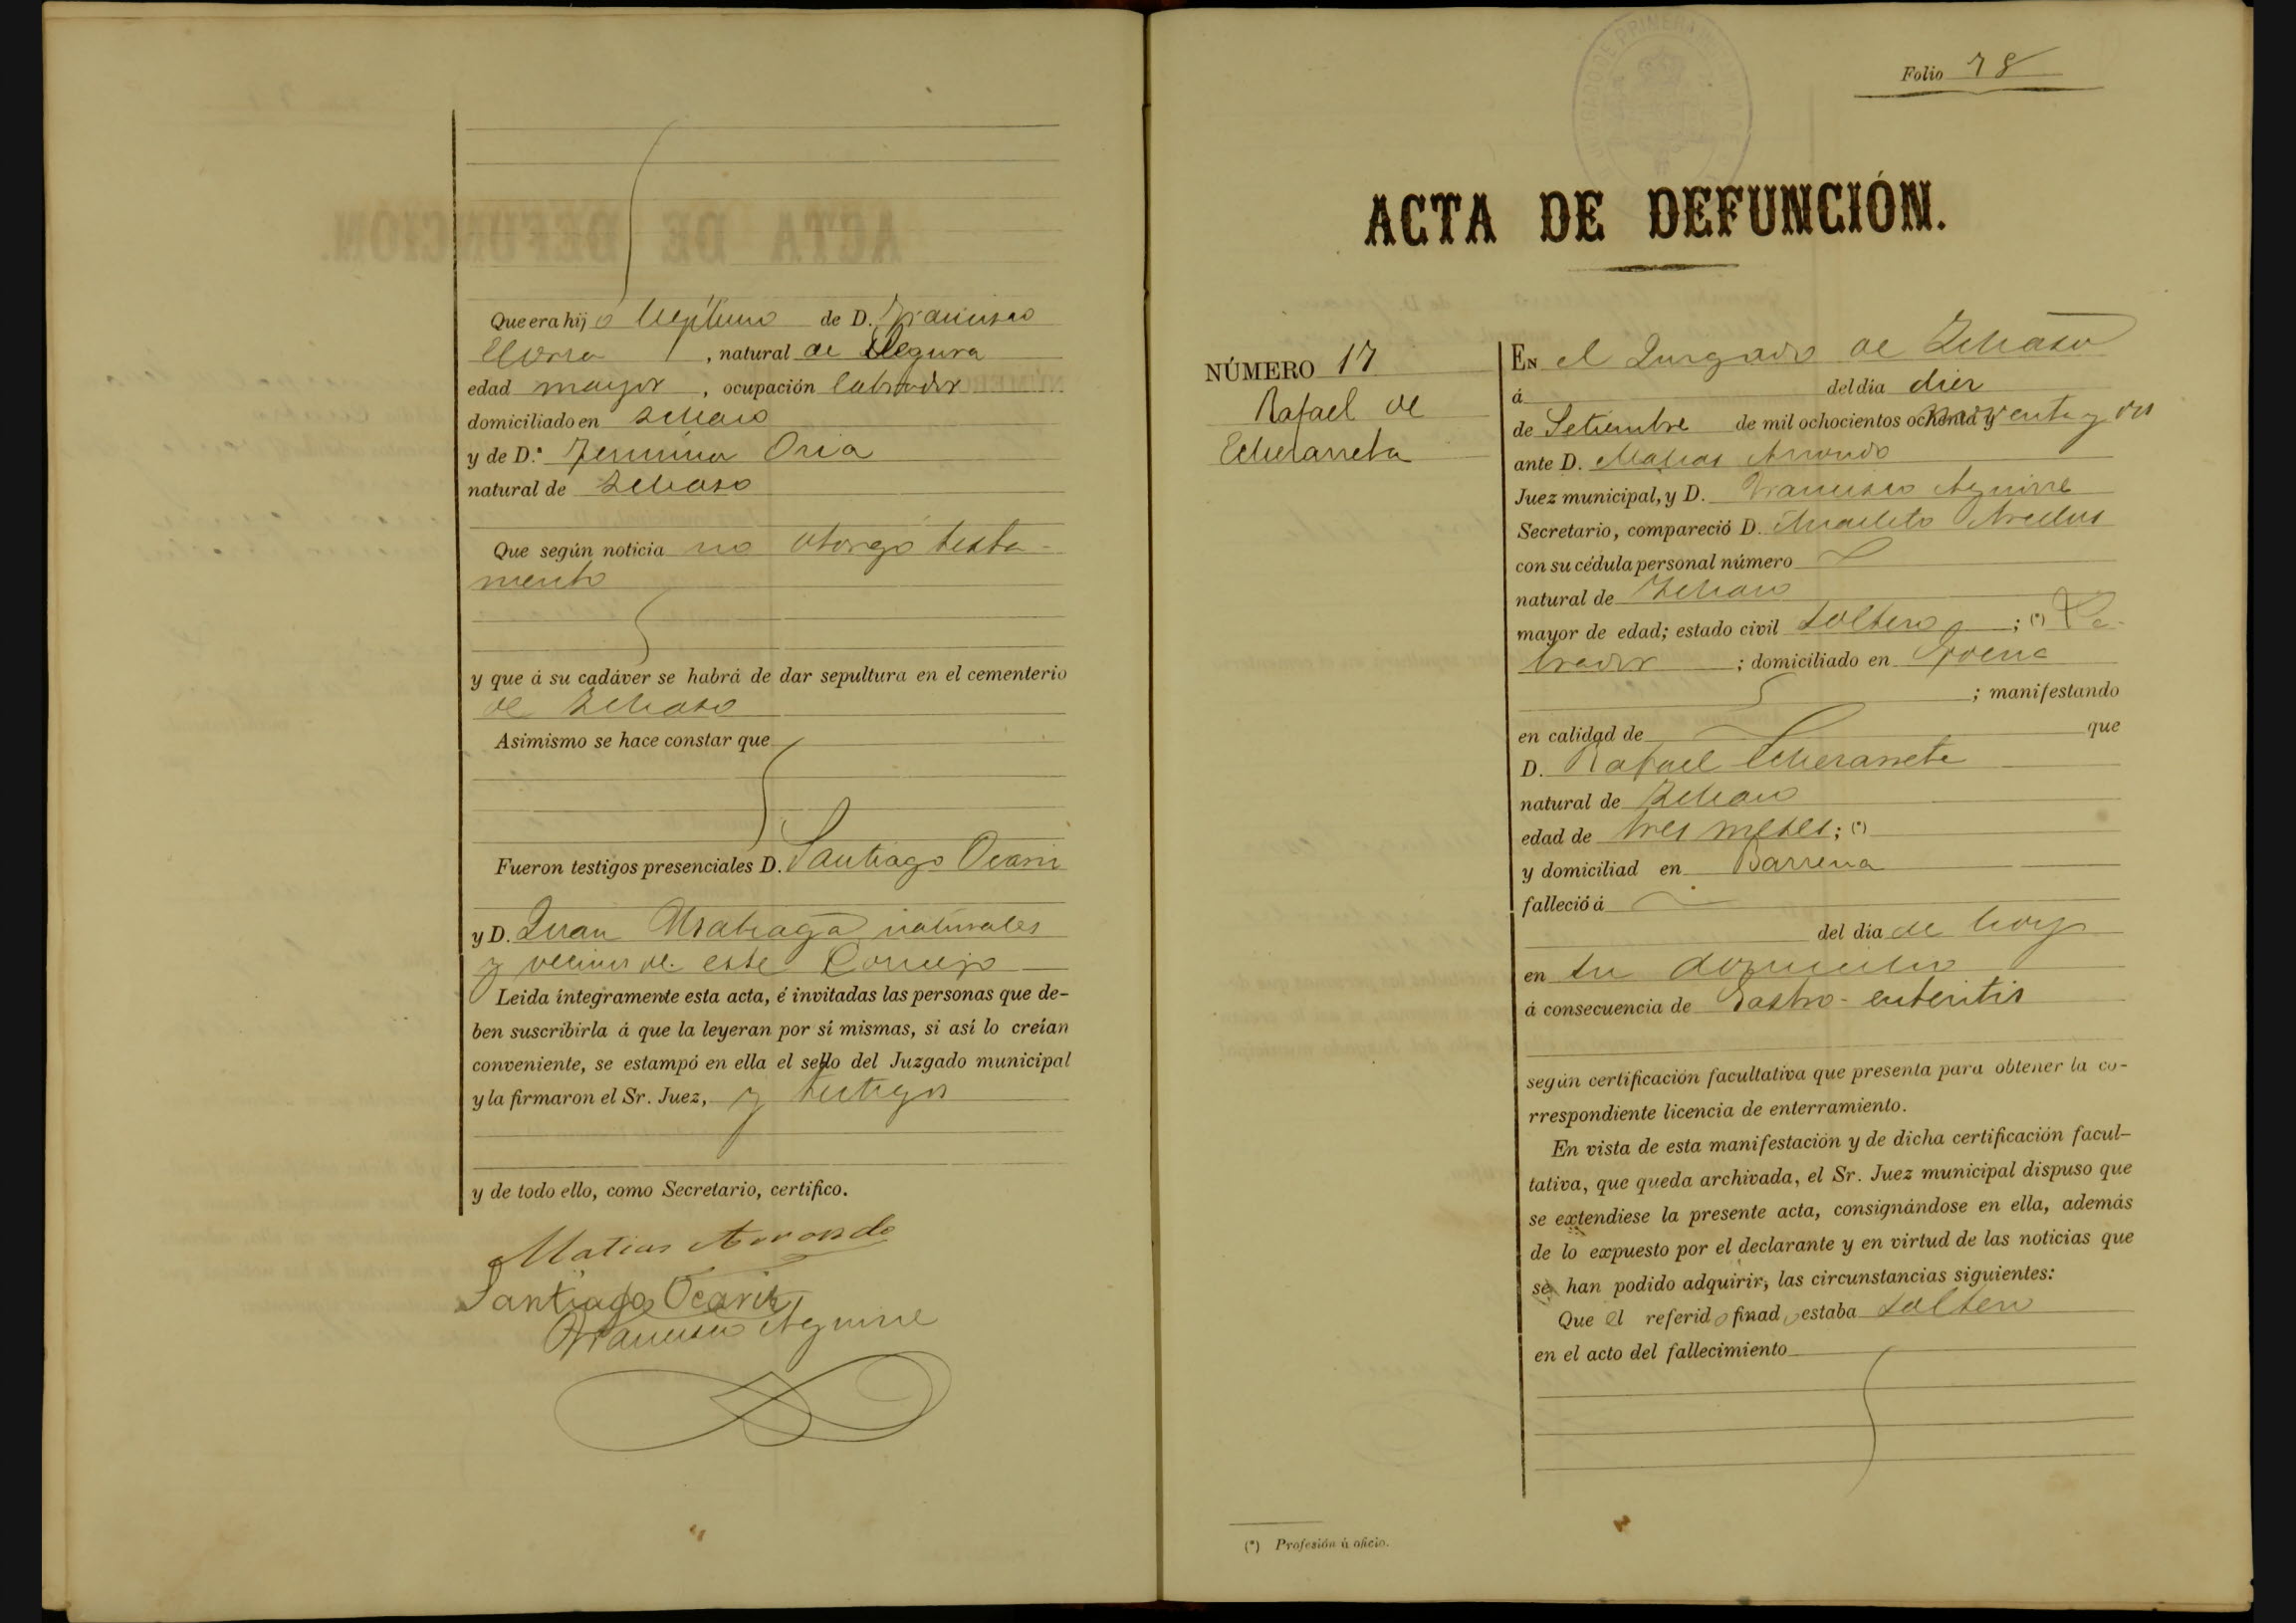 Que era hijo legítimo de D. Francisco
Elorra, natural de Segura
edad mayor, ocupación labrador
domiciliado en Ichaso
y de D.ª Fermina Oria
natural de Ichaso
Que según noticia no otorgó testa-
mento
y que á su cadáver se habrá de dar sepultura en el cementerio
de Ichaso
Asimismo se hace constar que
Fueron testigos presenciales D. Santiago Ocariz
y D. Juan Usabiaga naturales
y vecinos de este Concejo
Leida íntegramente esta acta, é invitadas las personas que de-
ben suscribirla á que la leyeran por sí mismas, si así lo creían
conveniente, se estampó en ella el sello del Juzgado municipal
y la firmaron el Sr. Juez, y testigos
y de todo ello, como Secretario, certifico.
Matias Arrondo
Santiago Ocariz
Francisco Aguirre
Folio 78
ACTA DE DEFUNCIÓN.
NÚMERO 17
Rafael de
Echerarreta
EN el Jurgado de Ichaso
á del día dier
de Setiembre de mil ochocientos ochenta y noventa y dos
ante D. Matias Arrondo
Juez municipal, y D. Francisco Aguirre
Secretario, compareció D. Anacleto
con su cédula personal número
natural de Ichaso
mayor de edad; estado civil soltero; (*) La-
brador; domiciliado en
; manifestando
en calidad de que
D. Rafael Echerarreta
natural de Ichaso
edad de tres meses; (*)
y domiciliad en Barrena
falleció á
del día de hoy
en su domicilio
á consecuencia de Gastro-enteritis
según certificación facultativa que presenta para obtener la co-
rrespondiente licencia de enterramiento.
En vista de esta manifestación y de dicha certificación facul-
tativa, que queda archivada, el Sr. Juez municipal dispuso que
se extendiese la presente acta, consignándose en ella, además
de lo expuesto por el declarante y en virtud de las noticias que
se han podido adquirir, las circunstancias siguientes:
Que el referido finado estaba soltero
en el acto del fallecimiento
(*) Profesión ú oficio.